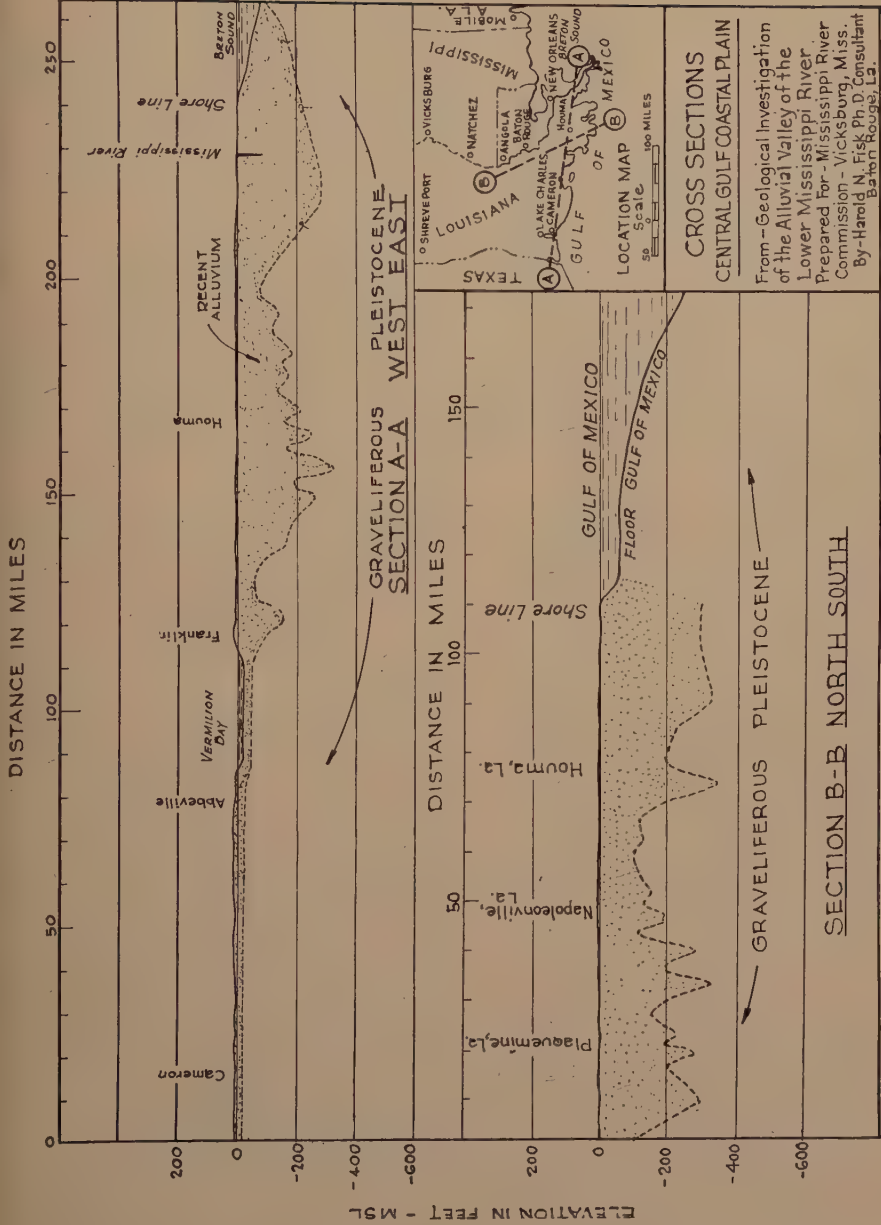 DISTANCE IN MILES
0
50
100
150
200
250
Cameron
Abbeville
VERMILION
BAY
Franklin
Houma
RECENT
ALLUVIUM
Mississippi River
Shore Line
BRETON
SOUND
200
0
-200
-400
GRAVELIFEROUS PLEISTOCENE
SECTION A-A WEST EAST
ELEVATION IN FEET - MSL
DISTANCE IN MILES
50
100
150
Plaquemine, La.
Napoleonville,
La.
Houma, La.
Shore Line
GULF OF MEXICO
FLOOR GULF OF MEXICO
200
0
-200
-400
-600
GRAVELIFEROUS PLEISTOCENE
SECTION B-B NORTH SOUTH
SHREVEPORT
VICKSBURG
NATCHEZ
MISSISSIPPI
ALA.
MOBILE
TEXAS
LOUISIANA
ANGOLA
BATON
ROUGE
LAKE CHARLES
CAMERON
HOUMA
NEW ORLEANS
BRETON
SOUND
A
A
B
B
GULF OF MEXICO
LOCATION MAP
Scale
50 0 100 MILES
CROSS SECTIONS
CENTRAL GULF COASTAL PLAIN
From-Geological Investigation
of the Alluvial Valley of the
Lower Mississippi River
Prepared For-Mississippi River
Commission-Vicksburg, Miss.
By-Harold N. Fisk Ph.D. Consultant
Baton Rouge, La.